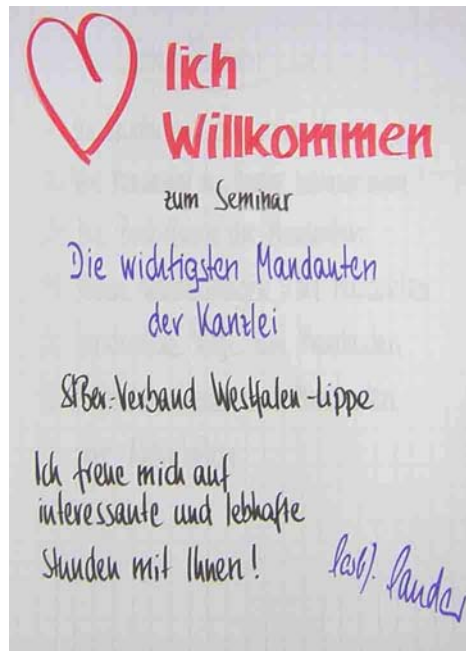 lich
Willkommen
zum Seminar
Die wichtigsten Mandanten
der Kanzlei
StBer.-Verband Westfalen-Lippe
Ich freue mich auf
interessante und lebhafte
Stunden mit Ihnen!